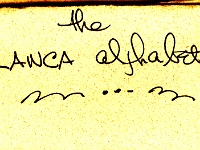 the
LANCA alphabet